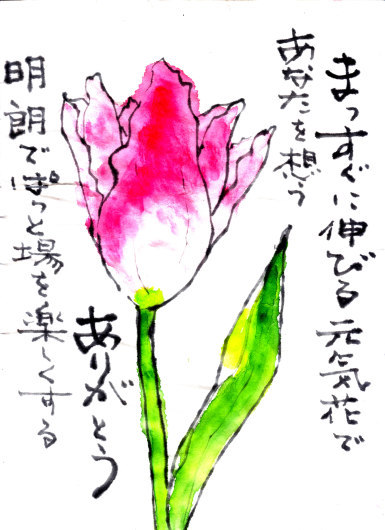 まっすぐに伸びる元気花で
あなたを想う
ありがとう
明朗でぱっと場を楽しくする